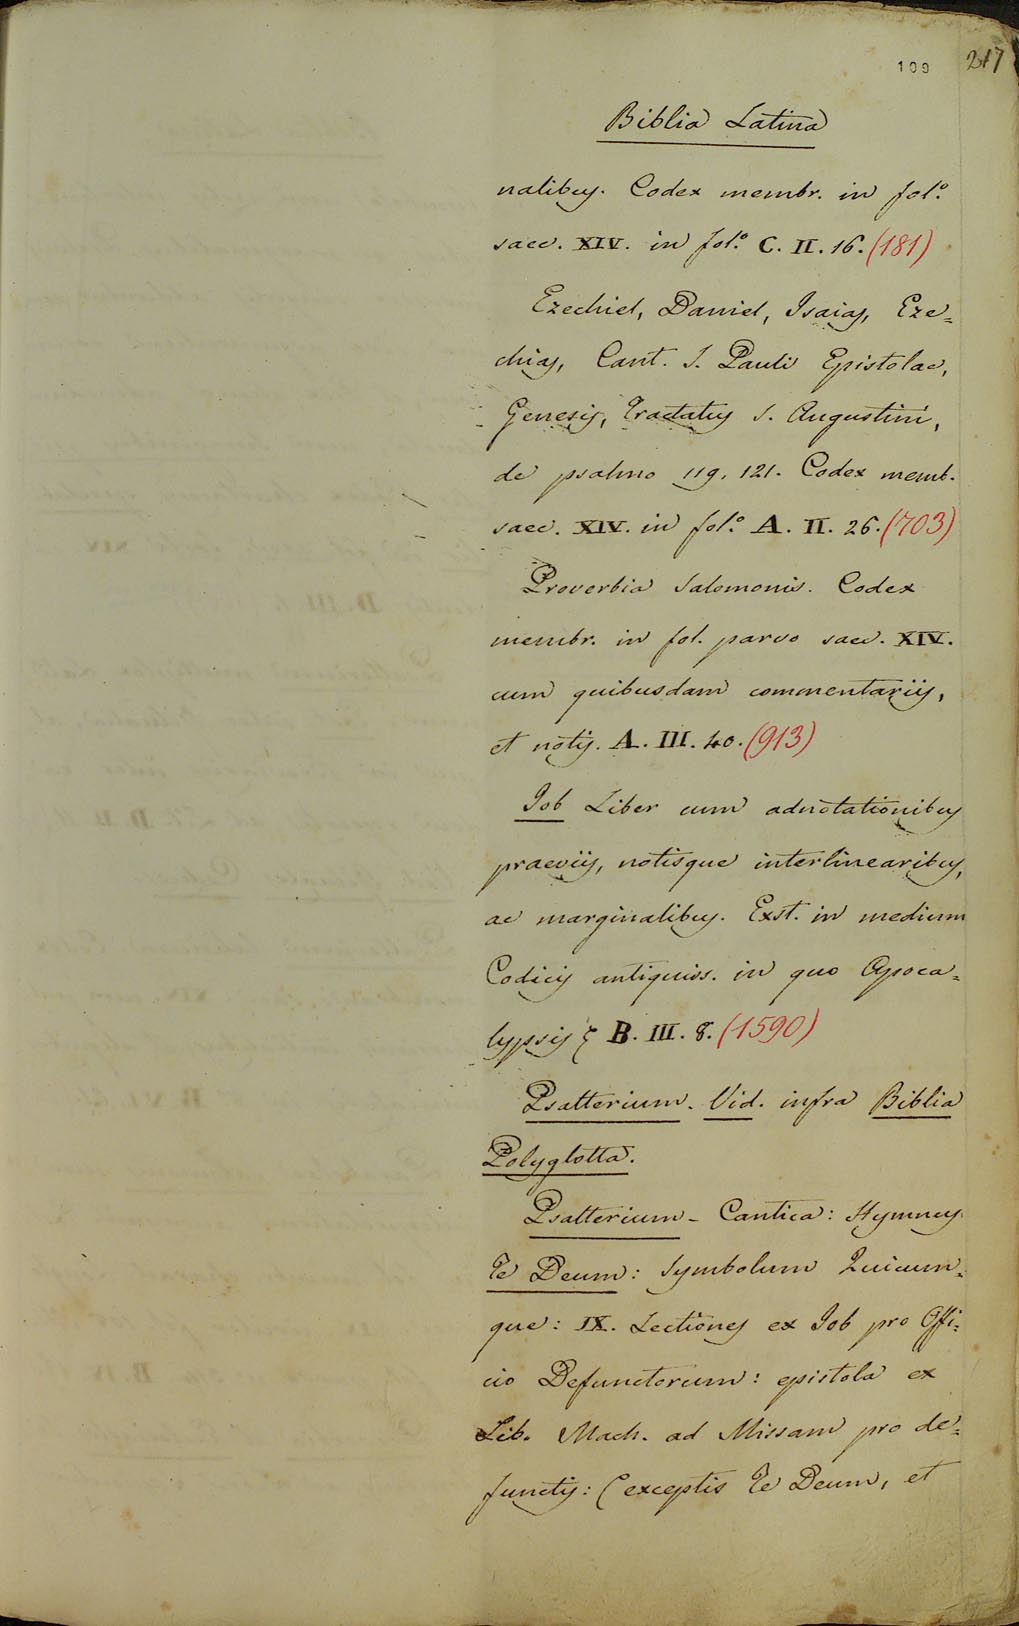 109 217
Biblia Latina
nalibus. Codex membr. in fol.º
saec. XIV. in fol.º C. II. 16. (181)
Ezechiel, Daniel, Isaias, Eze=
chias, Cant. S. Pauli Epistolae,
Genesis, Tractatus S. Augustini,
de psalmo 119, 121. Codex memb.
saec. XIV. in fol.º A. II. 26. (703)
Proverbia Salomonis. Codex
membr. in fol. parvo saec. XIV.
cum quibusdam commentariis,
et notis. A. III. 40. (913)
Job Liber cum adnotationibus
praeviis, notisque interlinearibus,
ac marginalibus. Exst. in medium
Codicis antiquiss. in quo Apoca=
lypsis B. III. 8. (1590)
Psalterium. Vid. infra Biblia
Polyglotta.
Psalterium - Cantica: Hymnus
Te Deum: Symbolum Quicum=
que: IX. Lectiones ex Job pro Offi=
cio Defunctorum: epistola ex
Lib. Mach. ad Missam pro de=
functis: (exceptis Te Deum, et